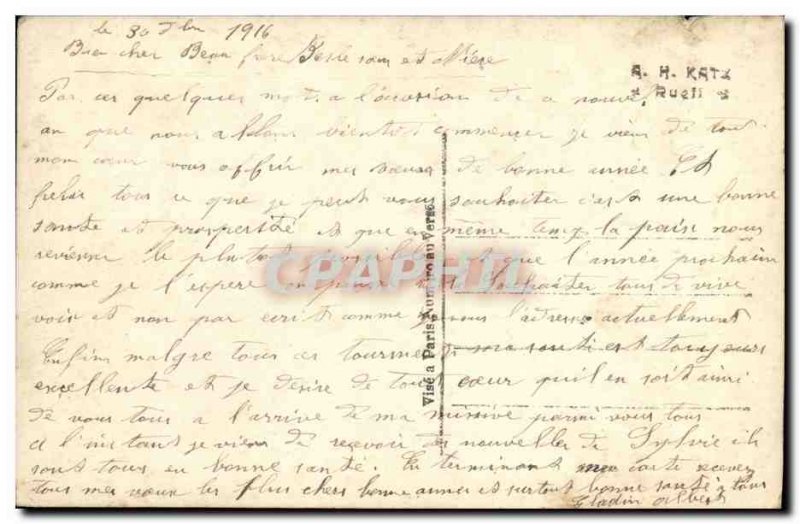 le 30 Xbre 1916
Bien cher Beau frere Belle sœur et Nièce
A. H. KATZ
Rueil
Par ces quelques mots a l'occasion de la nouvel
an que nous allons bientot commencer je viens de tout
mon cœur vous offrir mes vœux de bonne année Et
tous ce que je peut vous souhaiter c'est une bonne
santé et prosperité et que en même temp la paix nous
revienne le plutot possible et que l'année prochaine
comme je l'espere on pourra se souhaiter tous de vive
voix et non par ecrit comme je vous l'adresse actuellement
Enfin malgre tous ces tourments ma santé est toujours
excellente et je desire de tout cœur qu'il en soit ainsi
de vous tous a l'arrive de ma missive parmi vous tous
a l'instant je viens de recevoir des nouvelles de Sylvie ils
sont tous en bonne santé. En terminant ma carte recevez
tous mes vœux les plus chers bonne annee et surtout bonne santé a tous
Gladin Albert
Visé à Paris. Numéro au Verso.
CPAPHIL